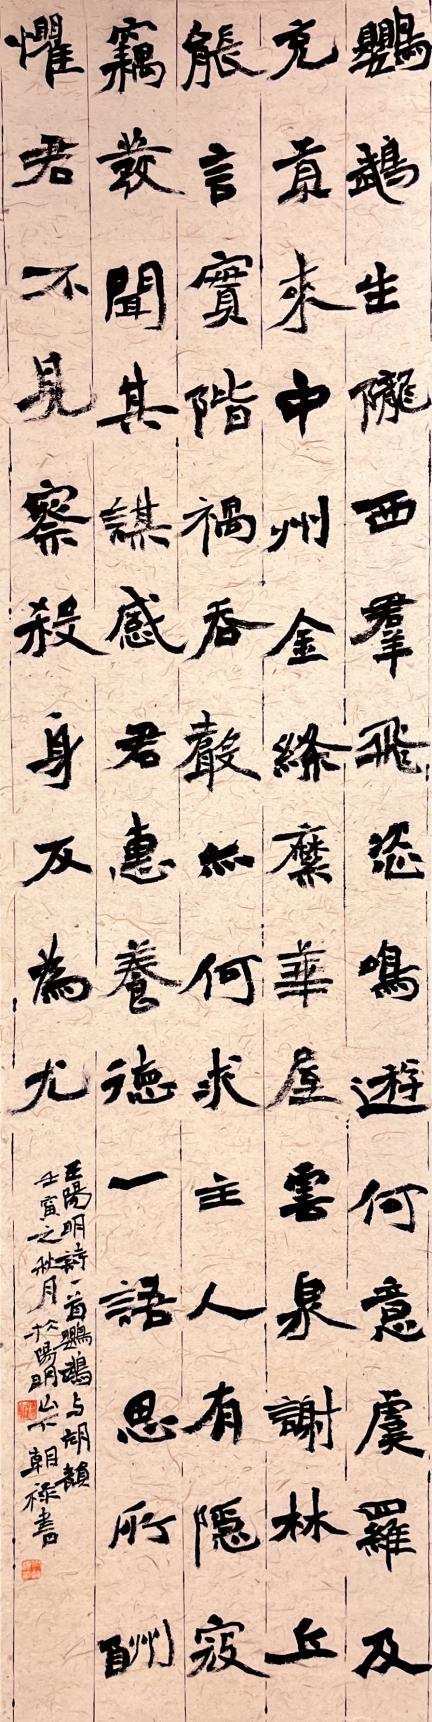 鸚鵡生隴西羣飛恣鳴遊何意虞羅及
充貢來中州金絛縻華屋雲泉謝林丘
能言實階禍吞聲亦何求主人有隱寇
竊發聞其謀感君惠養德一語思所酬
懼君不見察殺身反為尤
王陽明詩一首鸚鵡与胡韻
壬寅之秋月於陽明山下朝祿書